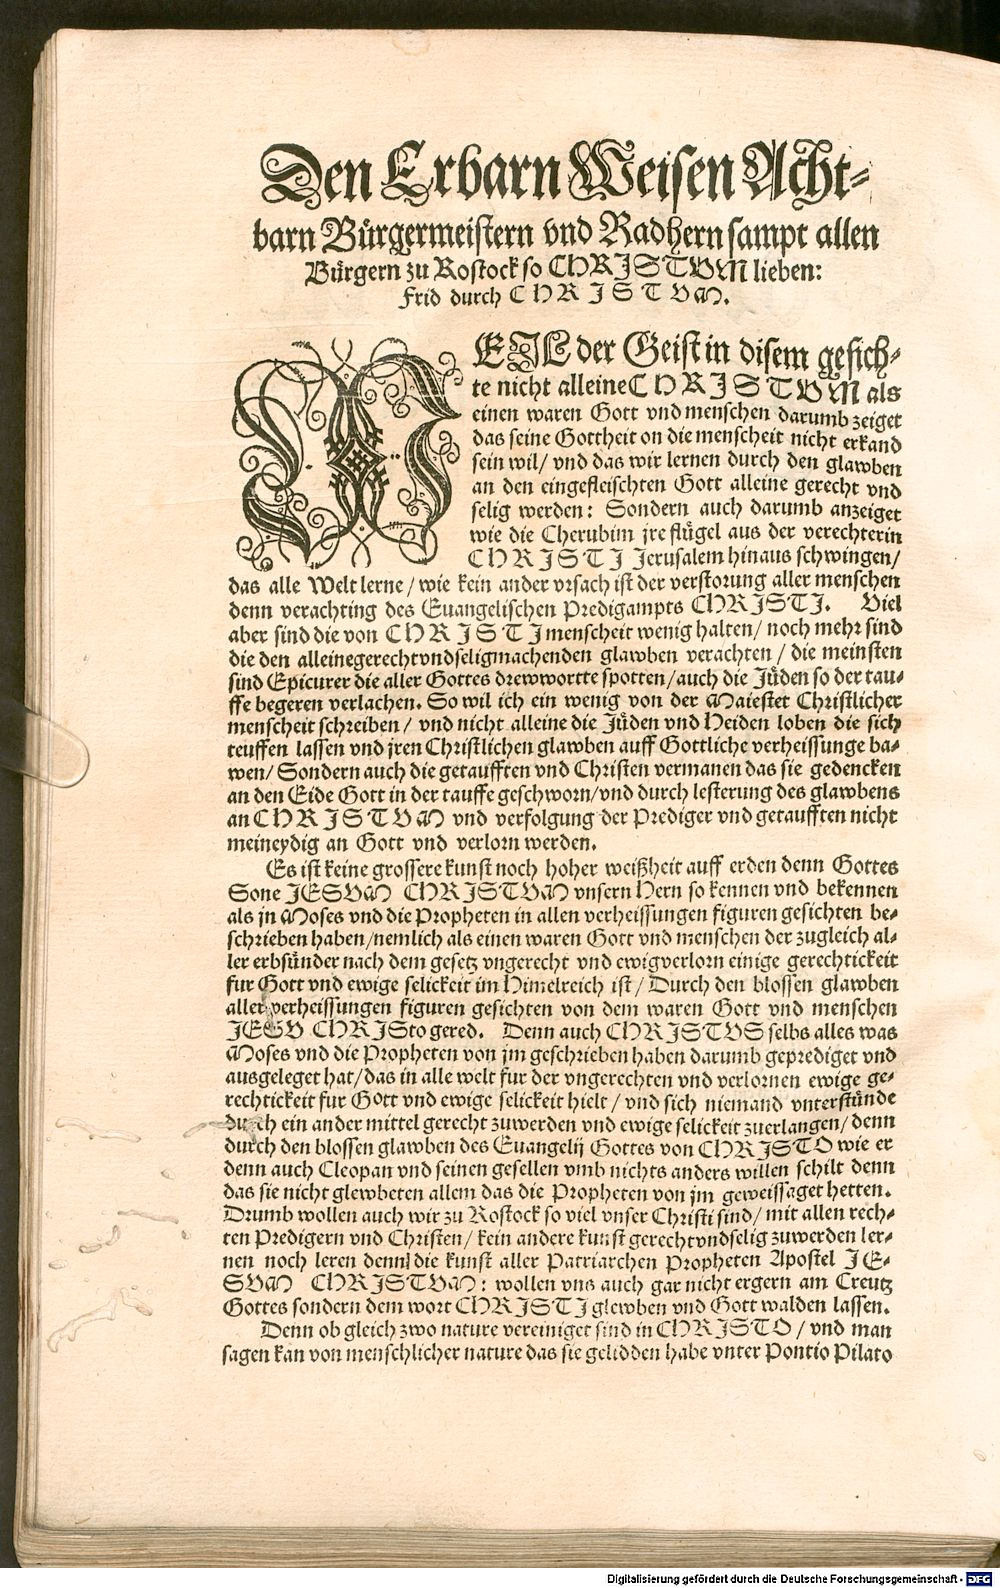 Den Erbarn Weisen Acht-
barn Bürgermeistern vnd Radhern sampt allen
Bürgern zu Rostock so CHRISTVM lieben:
Frid durch CHRISTVM.
WEIL der Geist in disem gesich-
te nicht alleine CHRISTVM als
einen waren Gott vnd menschen darumb zeiget
das seine Gottheit on die menscheit nicht erkand
sein wil/ vnd das wir lernen durch den glawben
an den eingefleischten Gott alleine gerecht vnd
selig werden: Sondern auch darumb anzeiget
wie die Cherubim jre flügel aus der verechterin
CHRISTI Jerusalem hinaus schwingen/
das alle Welt lerne/ wie kein ander vrsach ist der verstorung aller menschen
denn verachting des Euangelischen Predigampts CHRISTI. Viel
aber sind die von CHRISTI menscheit wenig halten/ noch mehr sind
die den alleinegerechtvndseligmachenden glawben verachten/ die meinsten
sind Epicurer die aller Gottes drewwortte spotten/ auch die Jüden so der tau-
ffe begeren verlachen. So wil ich ein wenig von der Maiestet Christlicher
menscheit schreiben/ vnd nicht alleine die Jüden vnd Heiden loben die sich
teuffen lassen vnd jren Christlichen glawben auff Gottliche verheissunge ba-
wen/ Sondern auch die getaufften vnd Christen vermanen das sie gedencken
an den Eide Gott in der tauffe geschworn/ vnd durch lesterung des glawbens
an CHRISTVM vnd verfolgung der Prediger vnd getaufften nicht
meineydig an Gott vnd verlorn werden.
Es ist keine grossere kunst noch hoher weißheit auff erden denn Gottes
Sone JESVM CHRISTVM vnsern Hern so kennen vnd bekennen
als jn Moses vnd die Propheten in allen verheissungen figuren gesichten be-
schrieben haben/ nemlich als einen waren Gott vnd menschen der zugleich al-
ler erbsünder nach dem gesetz vngerecht vnd ewigverlorn einige gerechtickeit
fur Gott vnd ewige selickeit im Himelreich ist/ Durch den blossen glawben
aller verheissungen figuren gesichten von dem waren Gott vnd menschen
JESV CHRISto gered. Denn auch CHRISTVS selbs alles was
Moses vnd die Propheten von jm geschrieben haben darumb geprediget vnd
ausgeleget hat/ das in alle welt fur der vngerechten vnd verlornen ewige ge-
rechtickeit fur Gott vnd ewige selickeit hielt/ vnd sich niemand vnterstünde
durch ein ander mittel gerecht zuwerden vnd ewige selickeit zuerlangen/ denn
durch den blossen glawben des Euangelij Gottes von CHRISTO wie er
denn auch Cleopan vnd seinen gesellen vmb nichts anders willen schilt denn
das sie nicht glewbeten allem das die Propheten von jm geweissaget hetten.
Drumb wollen auch wir zu Rostock so viel vnser Christi sind/ mit allen rech-
ten Predigern vnd Christen/ kein andere kunst gerechtvndselig zuwerden ler-
nen noch leren denn die kunst aller Patriarchen Propheten Apostel JE-
SVM CHRISTVM: wollen vns auch gar nicht ergern am Creutz
Gottes sondern dem wort CHRISTI glewben vnd Gott walden lassen.
Denn ob gleich zwo nature vereiniget sind in CHRISTO/ vnd man
sagen kan von menschlicher nature das sie gelidden habe vnter Pontio Pilato
Digitalisierung gefördert durch die Deutsche Forschungsgemeinschaft - DFG